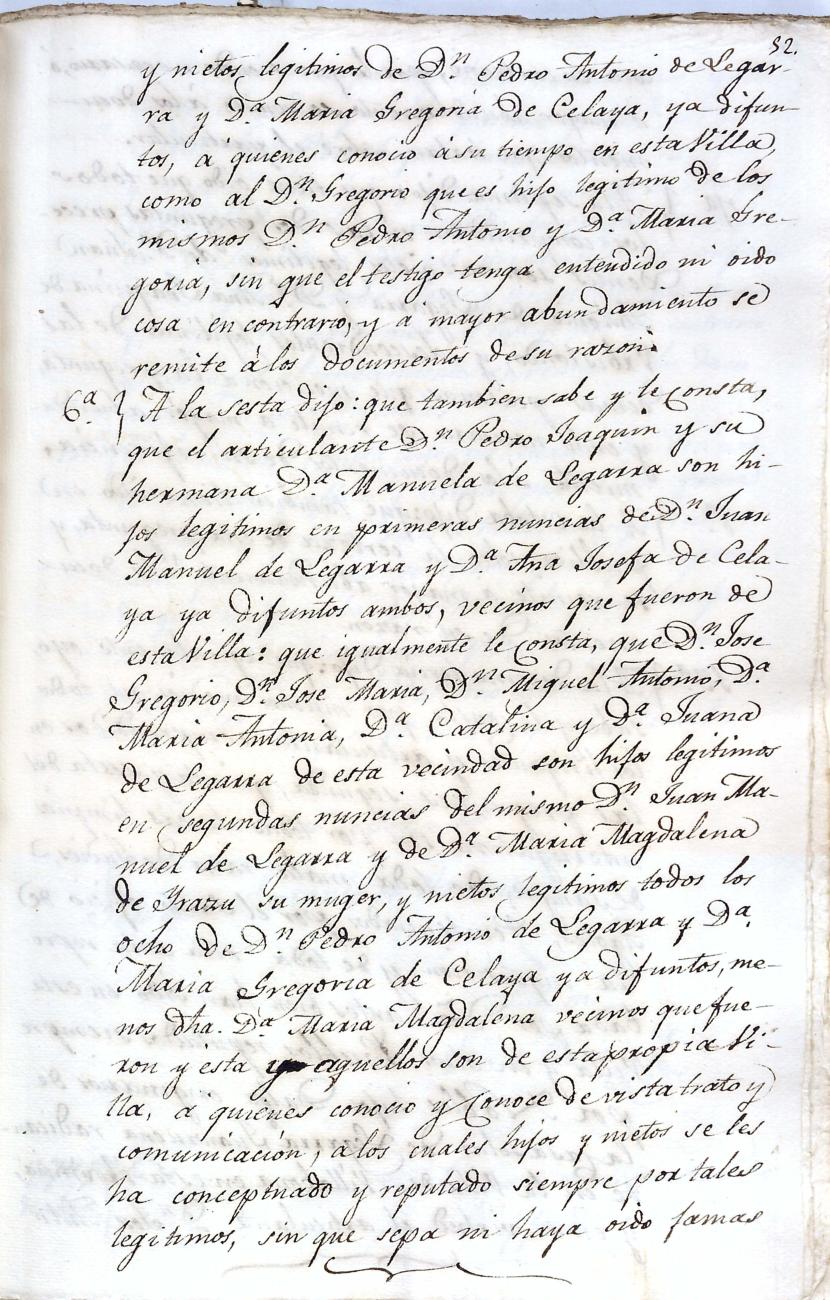 52.
y nietos legitimos de Dⁿ Pedro Antonio de Legar-
ra y Dª Maria Gregoria de Celaya, ya difun-
tos, a quienes conocio á su tiempo en esta Villa,
como al Dⁿ Gregorio que es hijo legitimo de los
mismos Dⁿ Pedro Antonio y Dª Maria Gre-
goria, sin que el testigo tenga entendido ni oido
cosa en contrario, y á mayor abundamiento se
remite á los documentos de su razon.
6ª } A la sesta dijo: que tambien sabe y le consta,
que el articulante Dⁿ Pedro Joaquin y su
hermana Dª Manuela de Legarra son hi-
jos legitimos en primeras nuncias de Dⁿ Juan
Manuel de Legarra y Dª Ana Josefa de Cela-
ya ya difuntos ambos, vecinos que fueron de
esta Villa: que igualmente le consta, que Dⁿ Jose
Gregorio, Dⁿ Jose Maria, Dⁿ Miguel Antonio, Dª
Maria Antonia, Dª Catalina y Dª Juana
de Legarra de esta vecindad son hijos legitimos
en segundas nuncias del mismo Dⁿ Juan Ma-
nuel de Legarra y de Dª Maria Magdalena
de Yrazu su muger, y nietos legitimos todos los
ocho de Dⁿ Pedro Antonio de Legarra y Dª
Maria Gregoria de Celaya ya difuntos, me-
nos dha. Dª Maria Magdalena vecinos que fue-
ron y esta aquellos son de esta propia Vi-
lla, á quienes conocio y conoce de vista trato y
comunicación, a los cuales hijos y nietos se les
ha conceptuado y reputado siempre por tales
legitimos, sin que sepa ni haya oido jamas